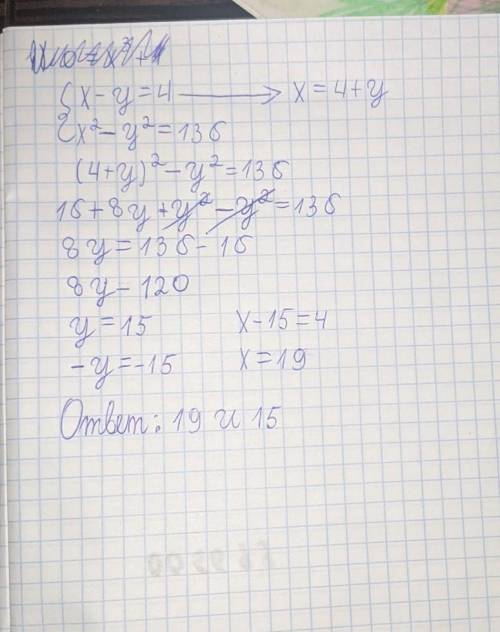 {x - y = 4 ⟶ x = 4 + y
{x² - y² = 136
(4+y)² - y² = 136
16 + 8y + y² - y² = 136
8y = 136 - 16
8y - 120
y = 15 x - 15 = 4
-y = -15 x = 19
Ответ: 19 и 15